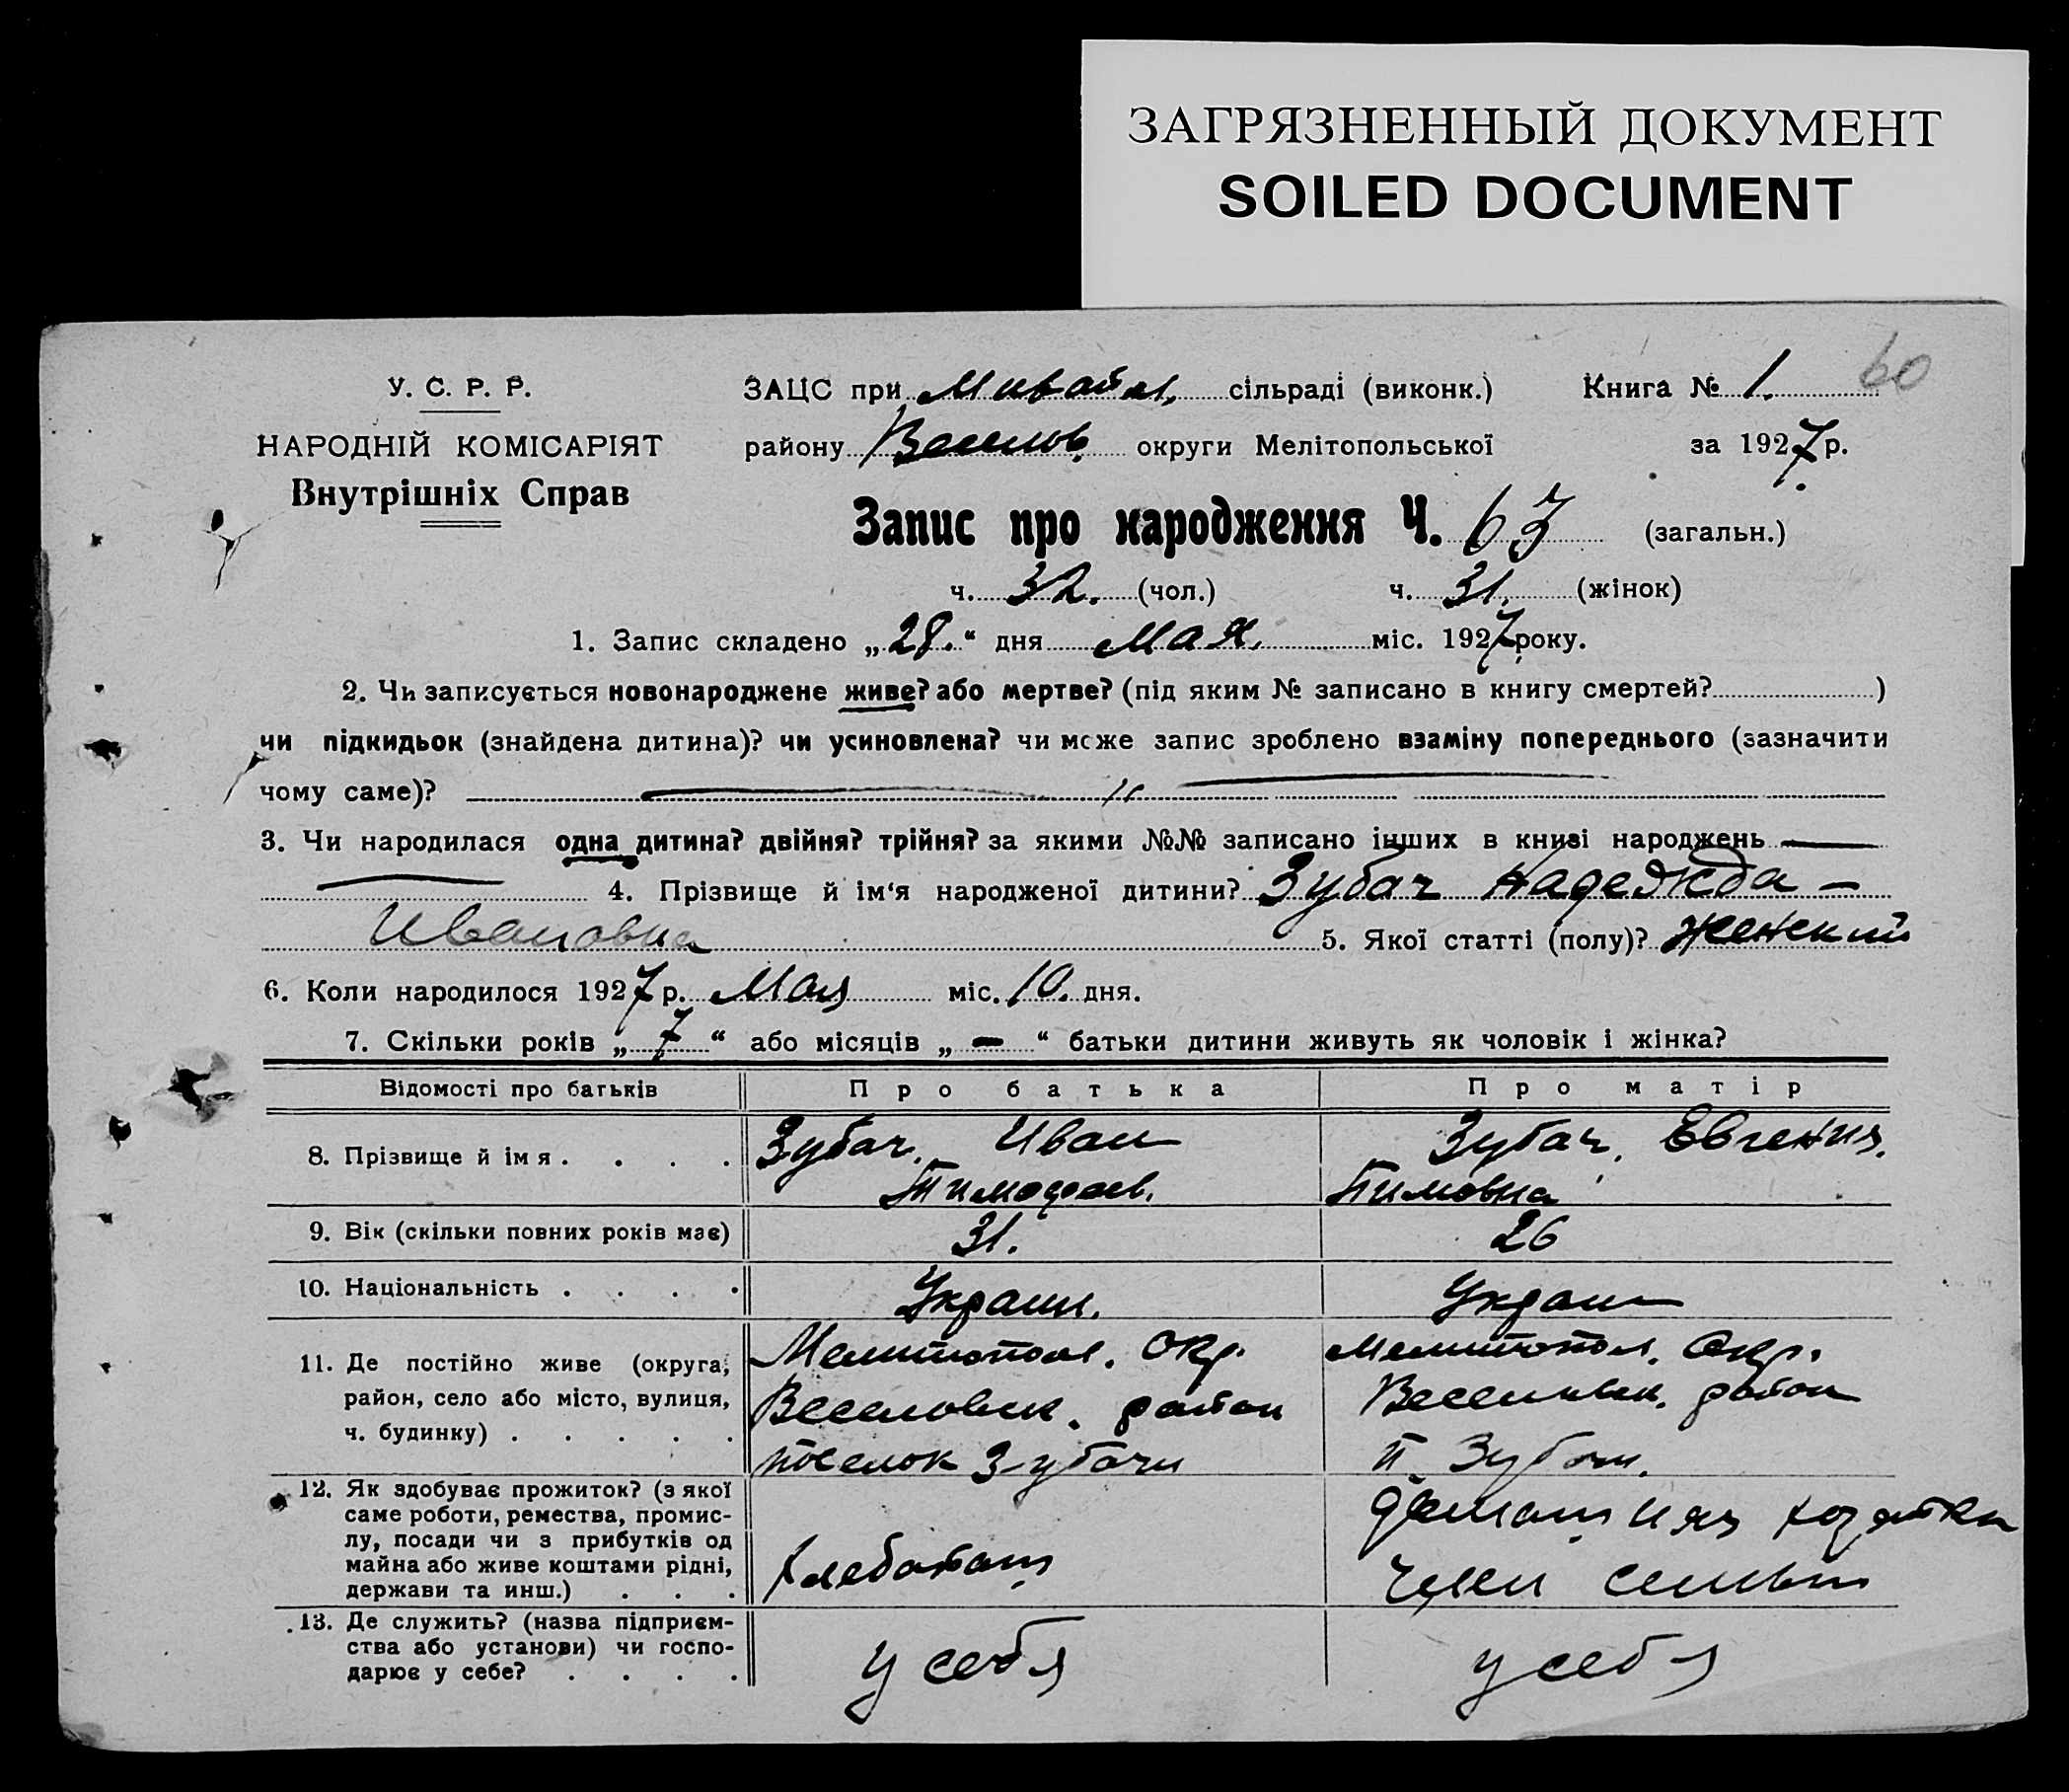 ЗАГРЯЗНЕННЫЙ ДОКУМЕНТ
SOILED DOCUMENT
60
У. С. Р. Р.
НАРОДНІЙ КОМІСАРІЯТ
Внутрішніх Справ
ЗАЦС при сільраді (виконк.) Книга № 1.
району Веселов. округи Мелітопольської за 1927 р.
Запис про народження Ч. 63 (загальн.)
ч. 32. (чол.) ч. 31. (жінок)
1. Запис складено „28.“ дня Мая. міс. 1927 року.
2. Чи записується новонароджене живе? або мертве? (під яким № записано в книгу смертей? )
чи підкидьок (знайдена дитина)? чи усиновлена? чи може запис зроблено взаміну попереднього (зазначити
чому саме)? — " —
3. Чи народилася одна дитина? двійня? трійня? за якими №№ записано інших в книзі народжень —
— 4. Прізвище й ім‘я народженої дитини? Зубач Надежда —
Ивановна 5. Якої статті (полу)? Женский
6. Коли народилося 1927 р. Мая міс. 10. дня.
7. Скільки років „7“ або місяців „—“ батьки дитини живуть як чоловік і жінка?
Відомості про батьків Про батька Про матір
8. Прізвище й імя . . . . Зубач. Иван Зубач. Евгения.
Тимофеев.
9. Вік (скільки повних років має) 31. 26
10. Національність . . . . Украин. Украин
11. Де постійно живе (округа, Мелитопол. Окр. Мелитопол. Окр.
район, село або місто, вулиця, Веселовск. район Веселовск. район
ч. будинку) . . . . . поселок Зубачи п. Зубачи.
12. Як здобуває прожиток? (з якої
саме роботи, ремества, промис-
лу, посади чи з прибутків од
майна або живе коштами рідні, хлебопаш член семьи
держави та инш.) . . .
13. Де служить? (назва підприєм-
ства або установи) чи госпо- у себя у себя
дарює у себе? . . . .